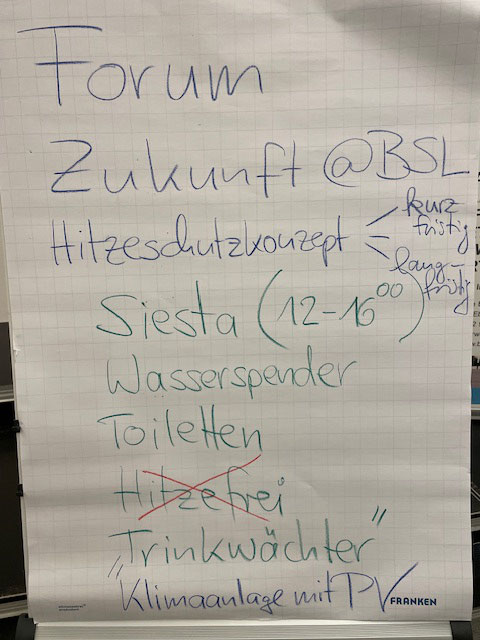 Forum
Zukunft @BSL
Hitzeschutzkonzept
kurz
fristig
lang-
fristig
Siesta (12-16⁰⁰)
Wasserspender
Toiletten
Hitzefrei
"Trinkwächter"
Klimaanlage mit PV
FRANKEN